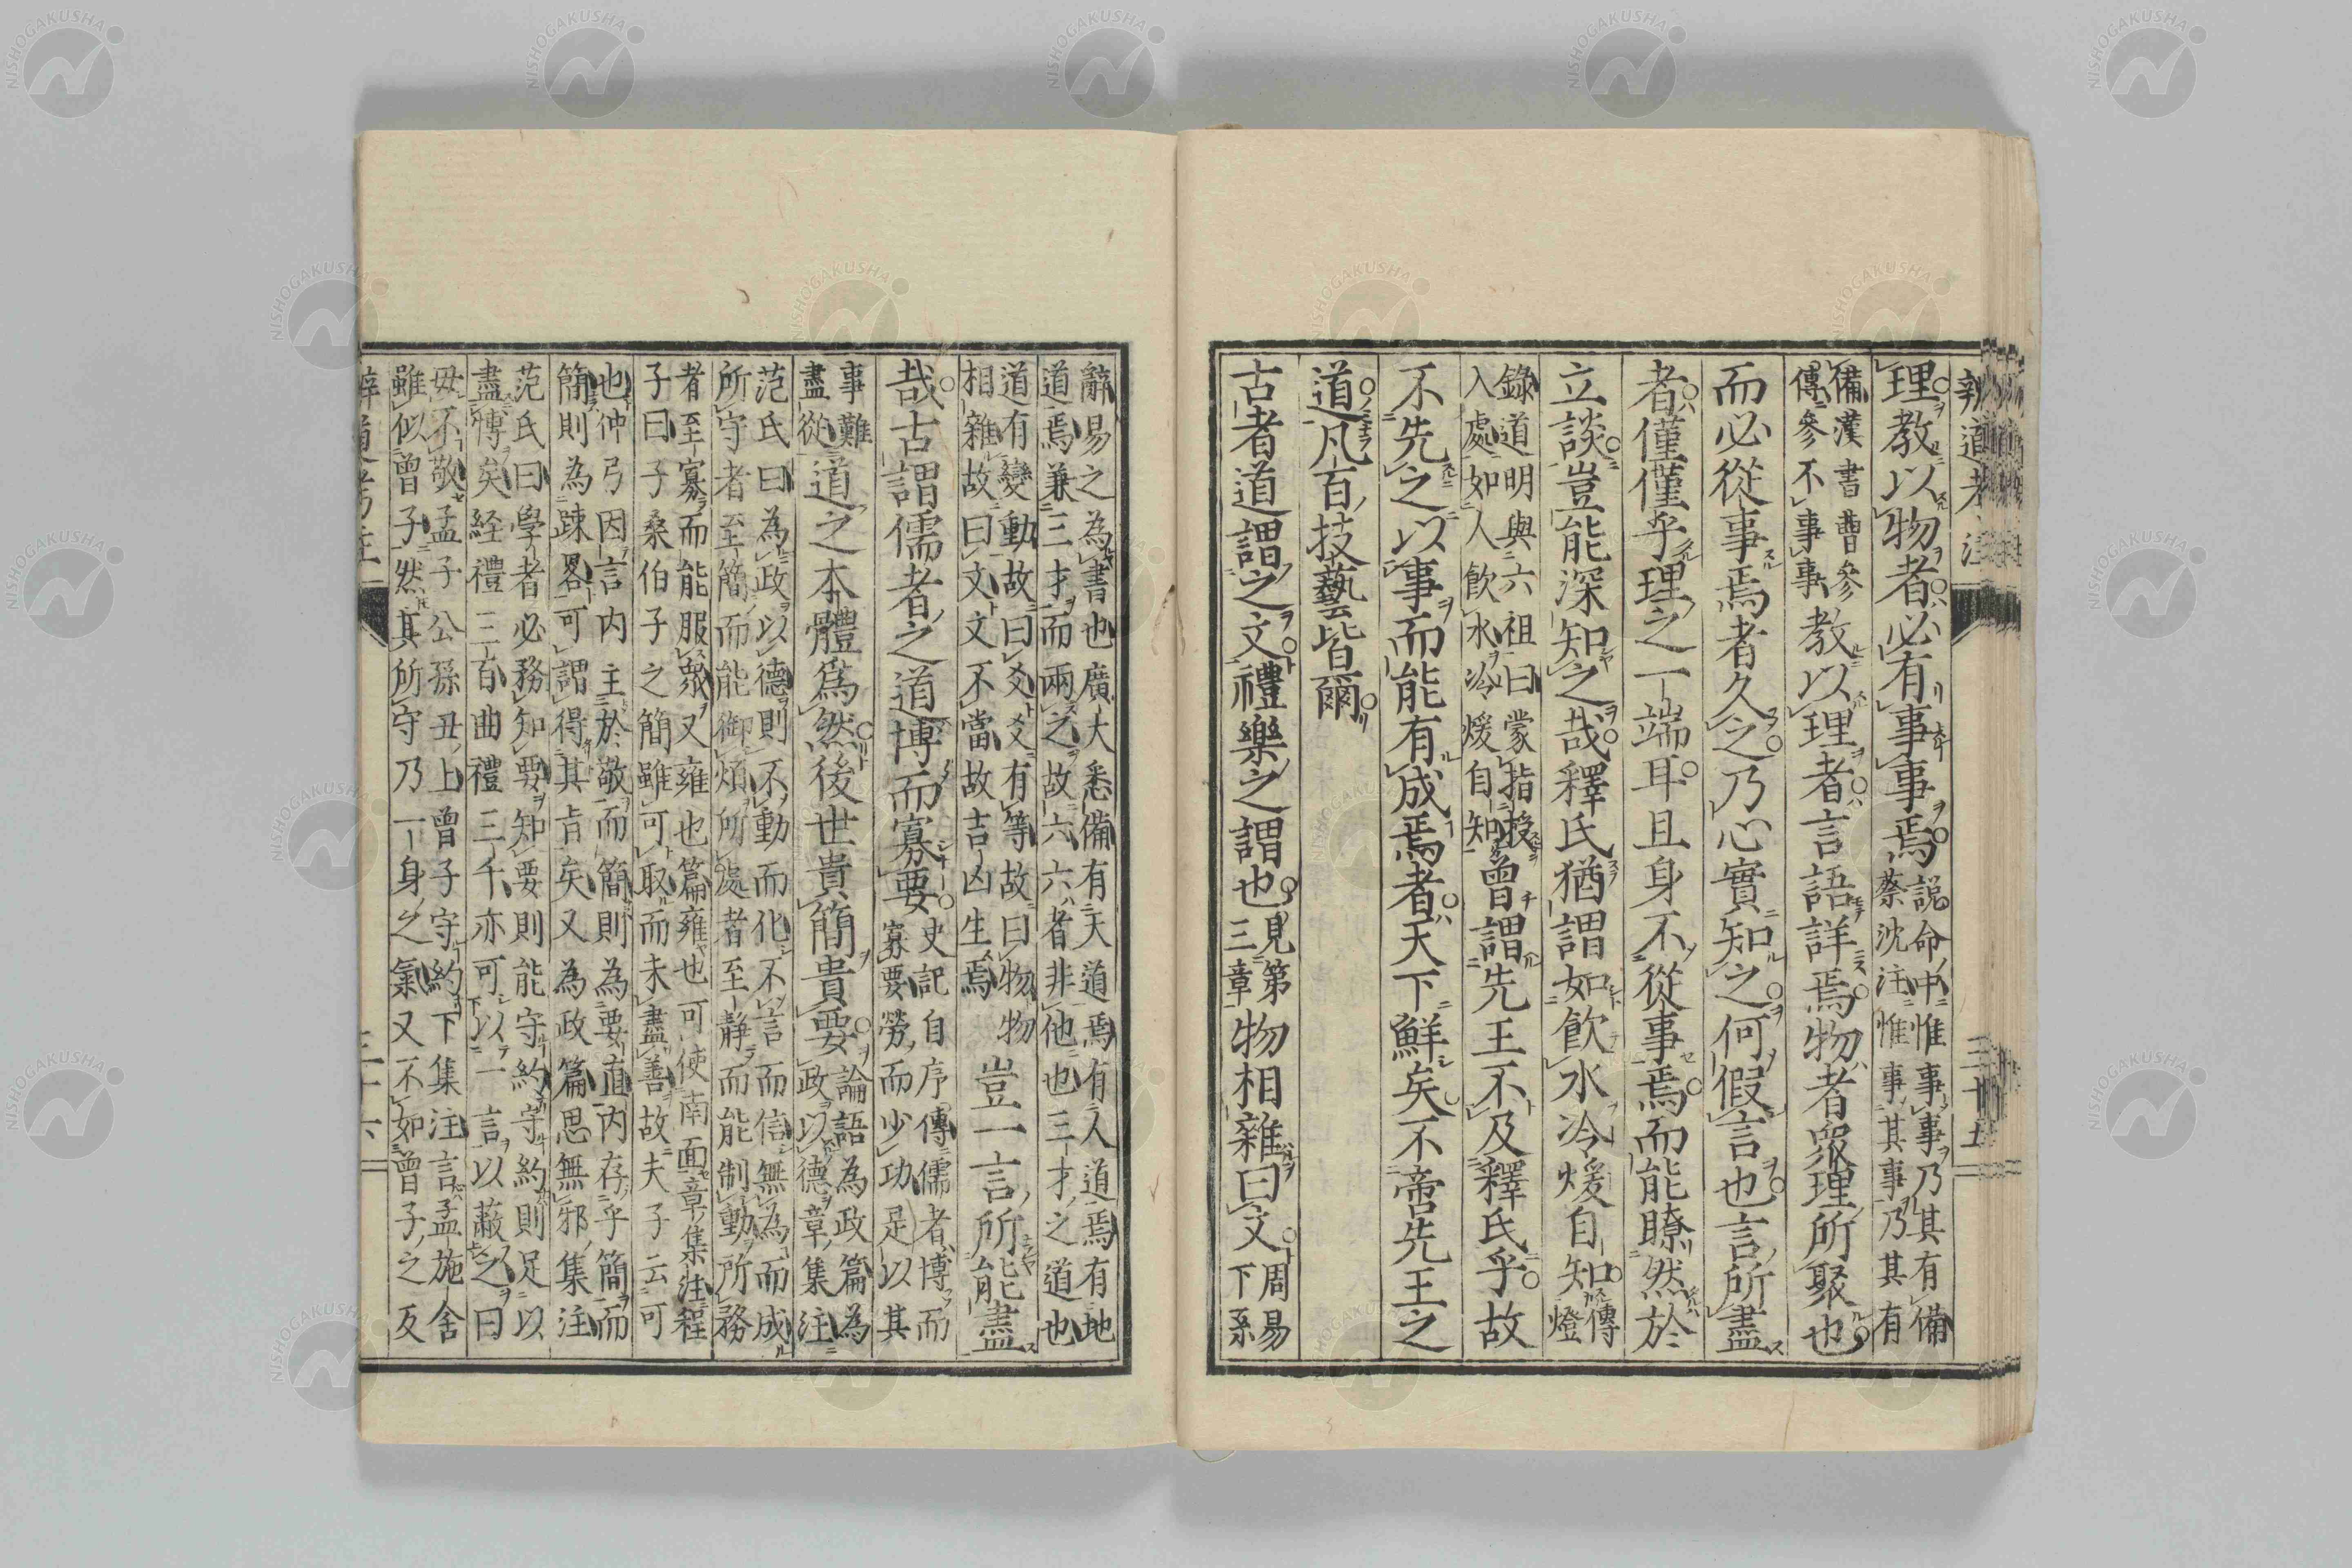 理教以物者必有事事焉説命中惟事事乃其有備蔡沈注惟事其事乃其有
備漢書曹參傳參不事事教以理者言語詳焉物者衆理所聚也
而必從事焉者久之乃心實知之何假言也言所盡
者僅僅乎理之一端耳且身不從事焉而能瞭然於
立談豈能深知之哉釋氏猶謂如飮水冷煖自知傳燈
錄道明與六祖曰蒙指授入處如人飲水冷煖自知曾謂先王不及釋氏乎故
不先之以事而能有成焉者天下鮮矣不啻先王之
道凡百技藝皆爾
古者道謂之文禮樂之謂也見第三章物相雜曰文周易下系
辭易之為書也廣大悉備有天道焉有人道焉有地道焉兼三才而兩之故六六者非他也三才之道也
道有變動故曰爻爻有等故曰物物相雜故曰文文不當故吉凶生焉豈一言所能盡
哉古謂儒者之道博而寡要史記自序傳儒者博而寡要勞而少功是以其
事難盡從道之本體爲然後世貴簡貴要論語為政篇為政以德章集注
范氏曰為政以德則不動而化不言而信無為而成所守者至簡而能御煩所處者至静而能制動所務
者至寡而能服衆又雍也篇雍也可使南面章集注程子曰子桑伯子之簡雖可取而未盡善故夫子云可
也仲弓因言内主於敬而簡則為要直内存乎簡而簡則為疎畧可謂得其旨矣又為政篇思無邪集注
范氏曰學者必務知要知要則能守約守約則足以盡博矣経禮三百曲禮三千亦可以一言以蔽之曰
毋不敬孟子公孫丑上曾子守約下集注言孟施舍雖似曾子然其所守乃一身之氣又不如曾子之反
辨道考注
三十五
三十六
NISHOGAKUSHA